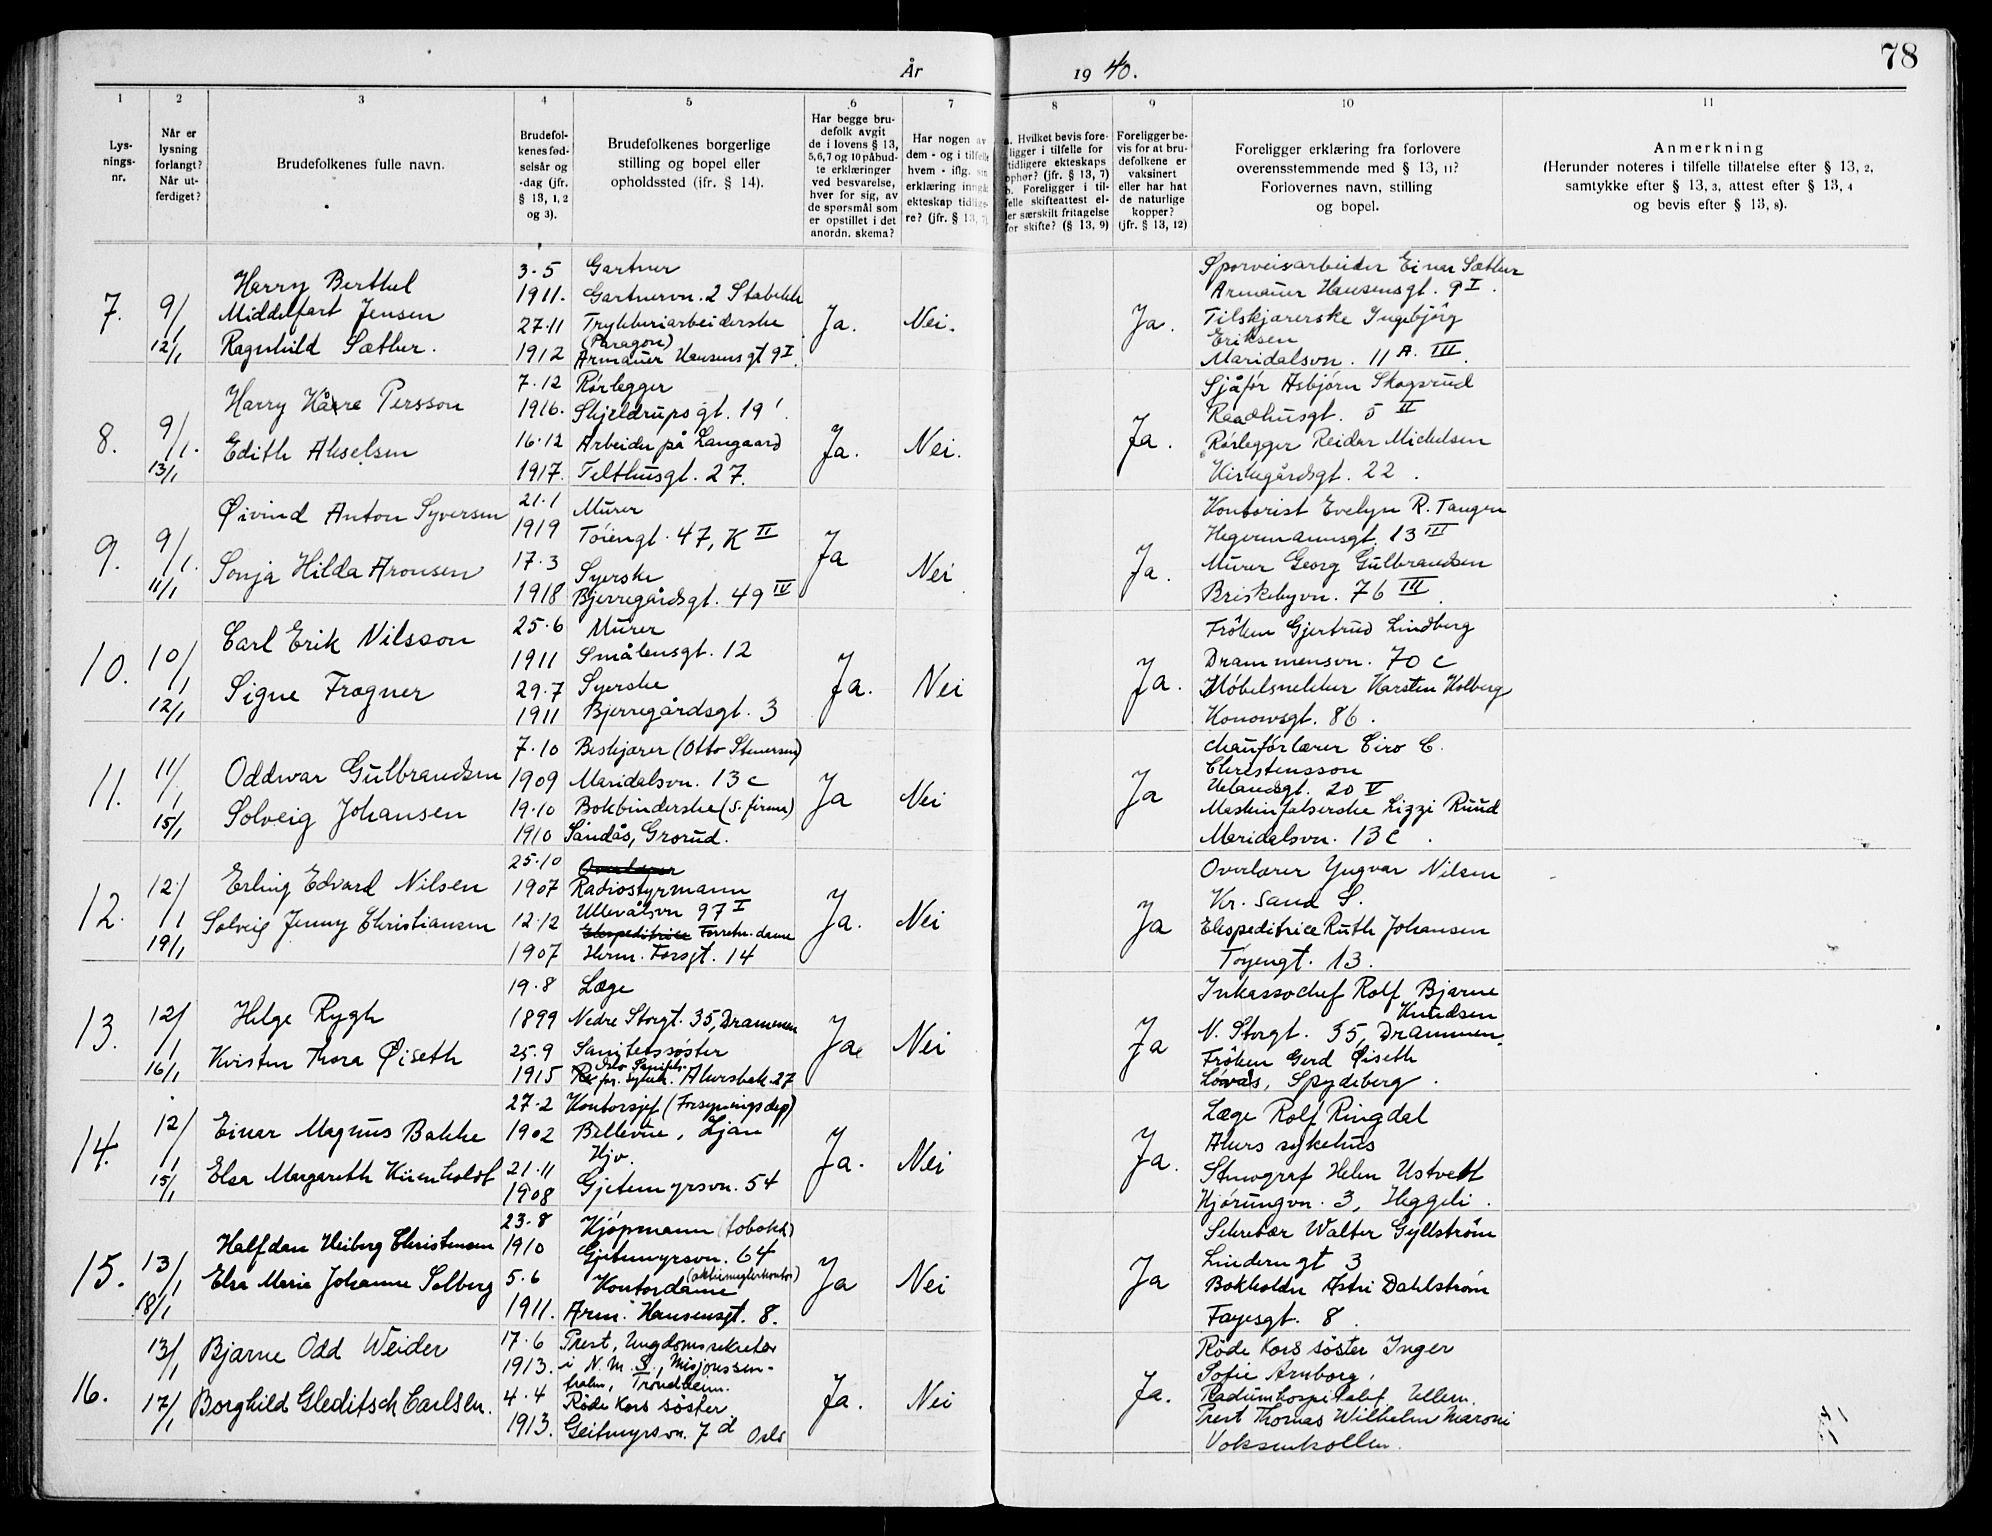 78
År 19 40.
1 2 3 4 5 6 7 8 9 10 11
Lys-
nings-
nr.
Når er
lysning
forlangt?
Når ut-
ferdiget?
Brudefolkenes fulle navn.
Brudefol-
kenes fød-
selsår og
-dag (jfr.
§ 13, 1, 2
og 3).
Brudefolkenes borgerlige
stilling og bopel eller
opholdssted (ifr. § 14).
Har begge bru-
defolk avgit
de i lovens § 13,
5,6,7 og 10 påbud-
te erklæringer
ved besvarelse,
hver for sig, av
de spørsmål som
er opstillet i det
anordn. skema?
Har nogen av
dem - og i tilfelle
hvem - iflg. sin
erklæring inngå
ekteskap tidlige-
re? (jfr. § 13, 7)
a. Hvilket bevis fore-
ligger i tilfelle for
tidligere ekteskaps
ophør? (jfr. § 13, 7)
b. Foreligger i til-
felle skifteattest el-
ler særskilt fritagelse
for skifte? (§ 13, 9)
Foreligger be-
vis for at bru-
defolkene er
vaksinert
eller har hat
de naturlige
kopper?
(jfr. § 13, 12)
Foreligger erklæring fra forlovere
overensstemmende med § 13, 11?
Forlovernes navn, stilling
og bopel.
Anmerkning
(Herunder noteres i tilfelle tillatelse efter § 13, 2,
samtykke efter § 13, 3, attest efter § 13, 4
og bevis efter § 13, 8).
7.
9/1
12/1
Harry Berthel
Middelfart Jensen
Ragnhild Sæther.
3-5
1911.
27-11
1912
Gartner
Gartnervn. 2 Stabekk
Trykkeriarbeiderske
(Paragon)
Armauer Hansensgt 9 I.
Ja.
Nei.
Ja.
Sporveisarbeider Einar Sæther
Armauer Hansensgt. 9 I.
Tilskjærerske Ingebjörg
Eriksen
Maridalsvn. 11 A. III.
8.
9/1.
13/1
Harry Kåre Persson
Edith Akselsen
7.12
1916.
16-12
1917.
Rörlegger
Skjeldrups gt. 19 '.
Arbeider på Langaard
Telthusgt. 27.
Ja.
Nei.
Ja.
Sjåför Asbjörn Skogsrud
Raadhusgt. 5 II
Rörlegger Reidar Michelsen
Kirkegårdsgt. 22.
9.
9/1.
11/1
Øivind Anton Syversen
Sonja Hilda Aronsen
21.1
1919
17.3
1918
Murer
Töiengt. 47, K II
Syerske
Bjerregårdsgt. 49 IV
Ja
Nei
Ja.
Kontorist Evelyn R. Tangen
Hegermannsgt. 13 III
Murer Georg Gulbrandsen
Briskebyvn. 76 III.
10.
10/1
12/1
Carl Erik Nilsson
Signe Frogner
25.6
1911
29.7
1911
Murer
Smålensgt. 12
Syerske
Bjerregårdsgt. 3
Ja.
Nei
Ja.
Fröken Gjertrud Lindberg
Drammensvn. 70 c
Möbelsnekker Karsten Holberg
Konowsgt. 86.
11.
11/1
15/1
Oddvar Gulbrandsen
Solveig Johansen
7.10
1909
19.10
1910
Beskjærer (Otto Stenersen)
Maridalsvn. 13 c
Bokbinderske (s. firma)
Sandås, Grorud.
Ja
Nei
Ja
Chauförlærer Ciro C.
Christensson
Uelandsgt. 20 V
Maskinfalserske Lizzi Ruud
Maridalsvn. 13 c.
12.
12/1
19/1
Erling Edvard Nilsen
Solveig Jenny Christiansen
25.10
1907
12.12
1907
Overlærer
Radiostyrmann
Ullevålsvn 97 I
Ekspeditrice Forretn. dame
Herm. Fossgt. 14
Ja.
Nei
Ja
Overlærer Yngvar Nilsen
Kr. Sand S.
Ekspeditrice Ruth Johansen
Töyengt. 13.
13.
12/1
16/1
Helge Rygh
Kirsten Thora Øiseth
19.8
1899
25.9
1915
Læge
Nedre Storgt. 35, Drammen
Sanitetssøster
Oslo Sanitets.
for. sykeh. Akersbak. 27
Ja
Nei
Ja
Inkassochef Rolf Bjarne
Knudsen
N. Storgt. 35, Drammen.
Fröken Gerd Øiseth
Löväs, Spydeberg.
14.
12/1
15/1
Einar Magnus Bakke
Elsa Margareth Kienholdt
27.2
1902
21.11
1908
Kontorsjef (Forsynings dep)
Bellevue, Ljan
Hjv.
Gjetemyrsvn. 54
Ja.
Nei
Ja.
Læge Rolf Ringdal
Akers sykehus
Stenograf Helen Ustvedt
Kjörungvn. 3, Heggeli.
15.
13/1
18/1
Halfdan Heiberg Christensen
Elsa Marie Johanne Solberg
23.8
1910
5.6
1911.
Kjöpmann (tobakk)
Gjetemyrsvn. 64
(aktiemeglerkontor)
Kontordame
Arm. Hansensgt. 8.
Ja
Nei
Ja
Sekretær Walter Gyllström
Lindern gt 3
Bokholder Astri Dahlström
Fayesgt. 8.
16.
13/1
17/1
Bjarne Odd Weider
Borghild Gleditsch Carlsen.
17.6
1913.
4.4
1913.
Prest, Ungdomssekretær
i N. M. S., Misjonssen-
halm, Trondheim.
Röde Kors söster
Geitmyrsvn. 7 d Oslo
Ja.
Nei
Ja.
Röde Kors söster Inger
Sofie Arnborg,
Radiumhospitalet, Ullern.
Prest Thomas Wilhelm Maroni
Voksenkollen.